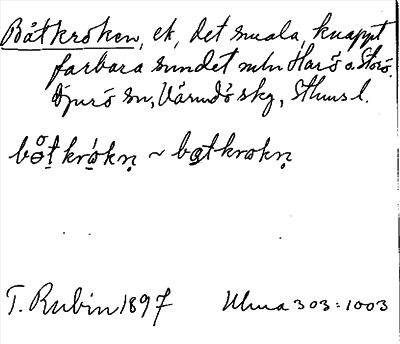 Båtkroken, ek, det smala, knappt
farbara sundet mln Harö o. Storö.
Djurö sn, Värmdö skg, Sthms l.
bå̊t krókn̥ ~ båtkrokn̥
T. Rubin 1897 Ulma 303:1003